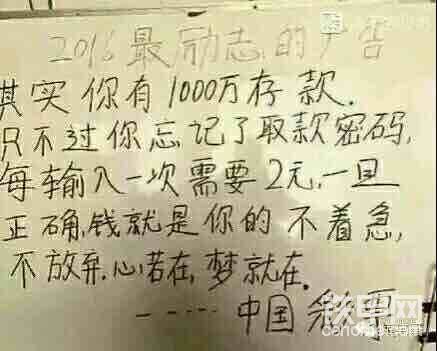 2016最励志的广告
其实你有1000万存款.
只不过你忘记了取款密码,
每输入一次需要2元.一旦
正确,钱就是你的 不着急,
不放弃.心若在,梦就在.
-----中国彩票
铁甲网